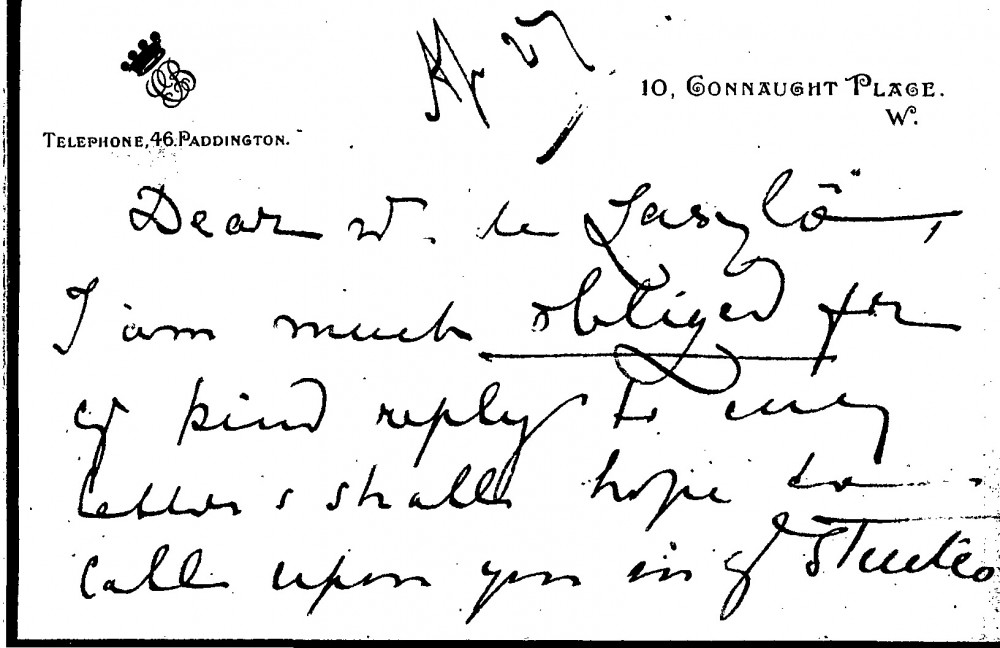 Ap 27
10, CONNAUGHT PLACE.
W.
TELEPHONE, 46. PADDINGTON.
Dear M. de Laszló,
I am much obliged for
yr kind reply to my
letter & shall hope to
call upon you in yr Studio